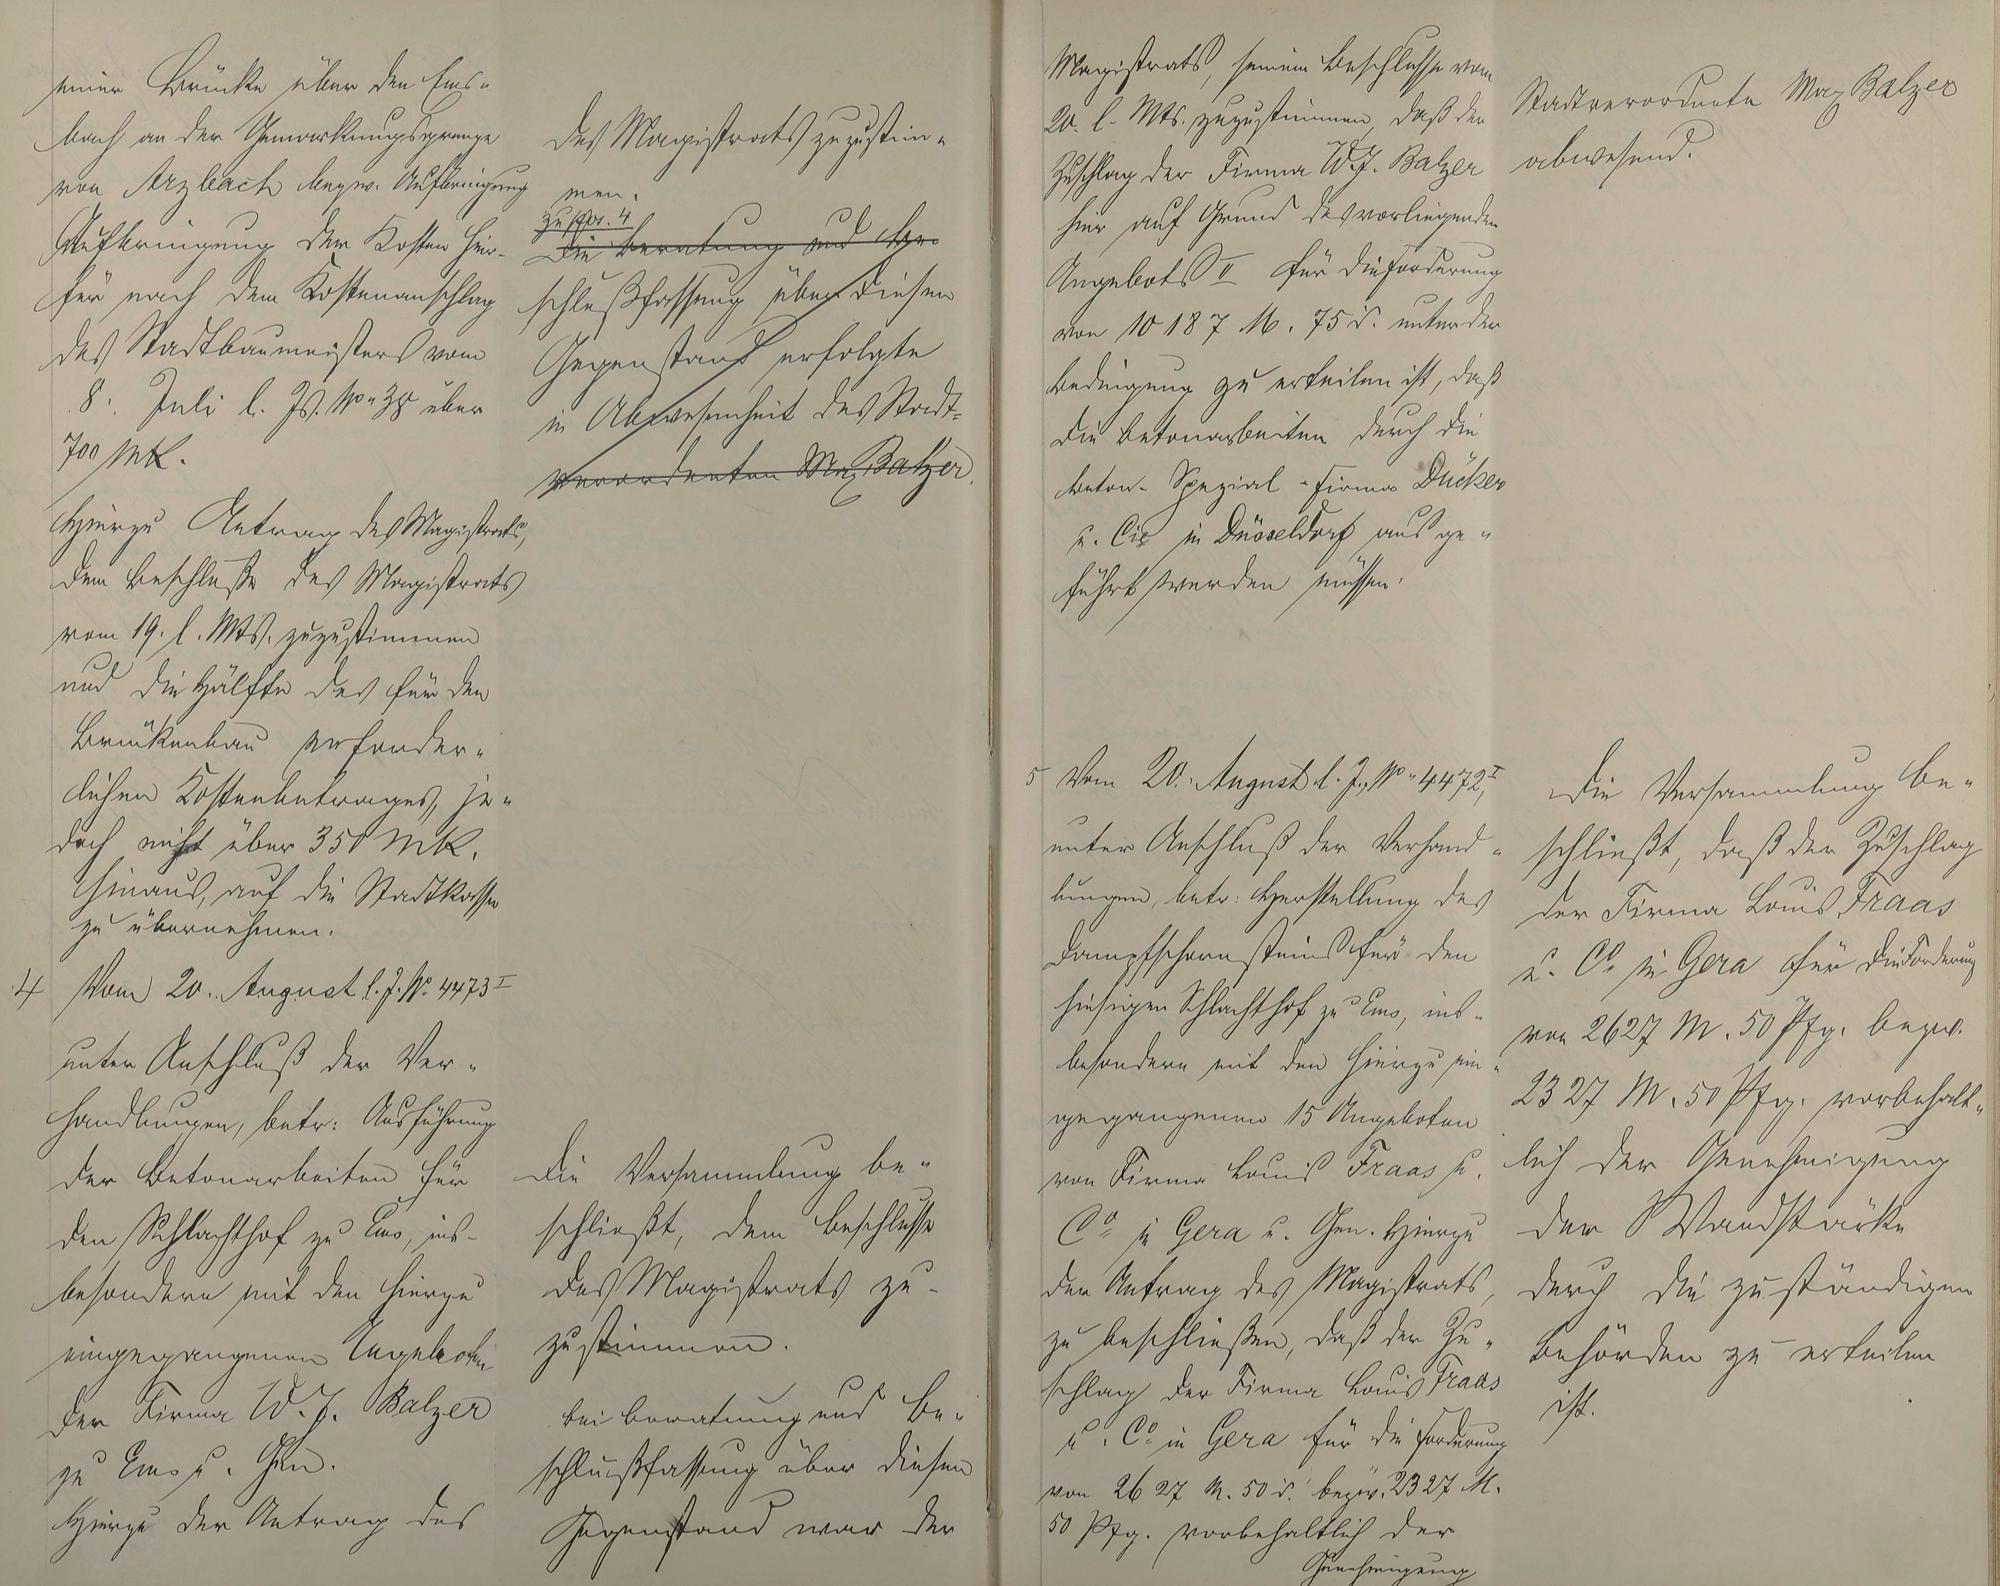 einer Brücke über den Ems-
bach an der Gemarkungsgrenze
von Arzbach bezw. Aufbringung
Aufbringung der Kosten hier-
für nach dem Kostenanschlag
des Stadtbaumeisters vom
8. Juli l. Js. No 38 über
700 Mk.
Hierzu Antrag des Magistrats,
dem Beschlusse des Magistrats
vom 19. l. Mts. zuzustimmen
und die Hälfte des für den
Brückenbau erforder-
lichen Kostenbetrages, je-
doch nicht über 350 Mk.
hinaus, auf die Stadtkasse
zu übernehmen.
4 Vom 20. August l. J. No. 4473 I
unter Anschluß der Ver-
handlungen, betr: Ausführung
der Betonarbeiten für
den Schlachthof zu Ems, ins-
besondere mit den hierzu
eingegangenen Angeboten
der Firma W. J. Balzer
zu Ems u. Gen.
Hierzu der Antrag des
des Magistrats zuzustim-
men.
zu Nr. 4
Die Beratung und Be-
schlußfassung über diesen
Gegenstand erfolgte
in Abwesenheit des Stadt-
verordneten Max Balzer.
Die Versammlung be-
schließt, dem Beschlusse
des Magistrats zu-
zustimmen.
Bei Beratung und Be-
schlußfassung über diesen
Gegenstand war der
Magistrats, seinem Beschlusse vom
20. l. Mts. zuzustimmen, daß der
Zuschlag der Firma W. J. Balzer
hier auf Grund des vorliegenden
Angebots II für die Forderung
von 10187 M. 75 d. unter der
Bedingung zu erteilen ist, daß
die Betonarbeiten durch die
Beton-Spezial-Firma Dücker
u. Cie in Düsseldorf ausge-
führt werden müssen.
5 Vom 20. August l. J., No 4472 I,
unter Anschluß der Verhand-
lungen, betr: Herstellung des
Dampfschornsteins für den
hiesigen Schlachthof zu Ems, ins-
besondere mit den hierzu ein-
gegangenen 15 Angeboten
von Firma Louis Fraas u.
Co in Gera u. Gen. Hierzu
der Antrag des Magistrats,
zu beschließen, daß der Zu-
schlag der Firma Louis Fraas
u. Co in Gera für die Forderung
von 2627 M. 50 d. bezw. 2327 M.
50 Pfg. vorbehaltlich der
Genehmigung
Stadtverordnete Max Balzer
abwesend.
Die Versammlung be-
schließt, daß der Zuschlag
der Firma Louis Fraas
u. Co in Gera für die Forderung
von 2627 M. 50 Pfg. bezw.
2327 M. 50 Pfg. vorbehalt-
lich der Genehmigung
der Wandstärke
durch die zuständigen
Behörden zu erteilen
ist.